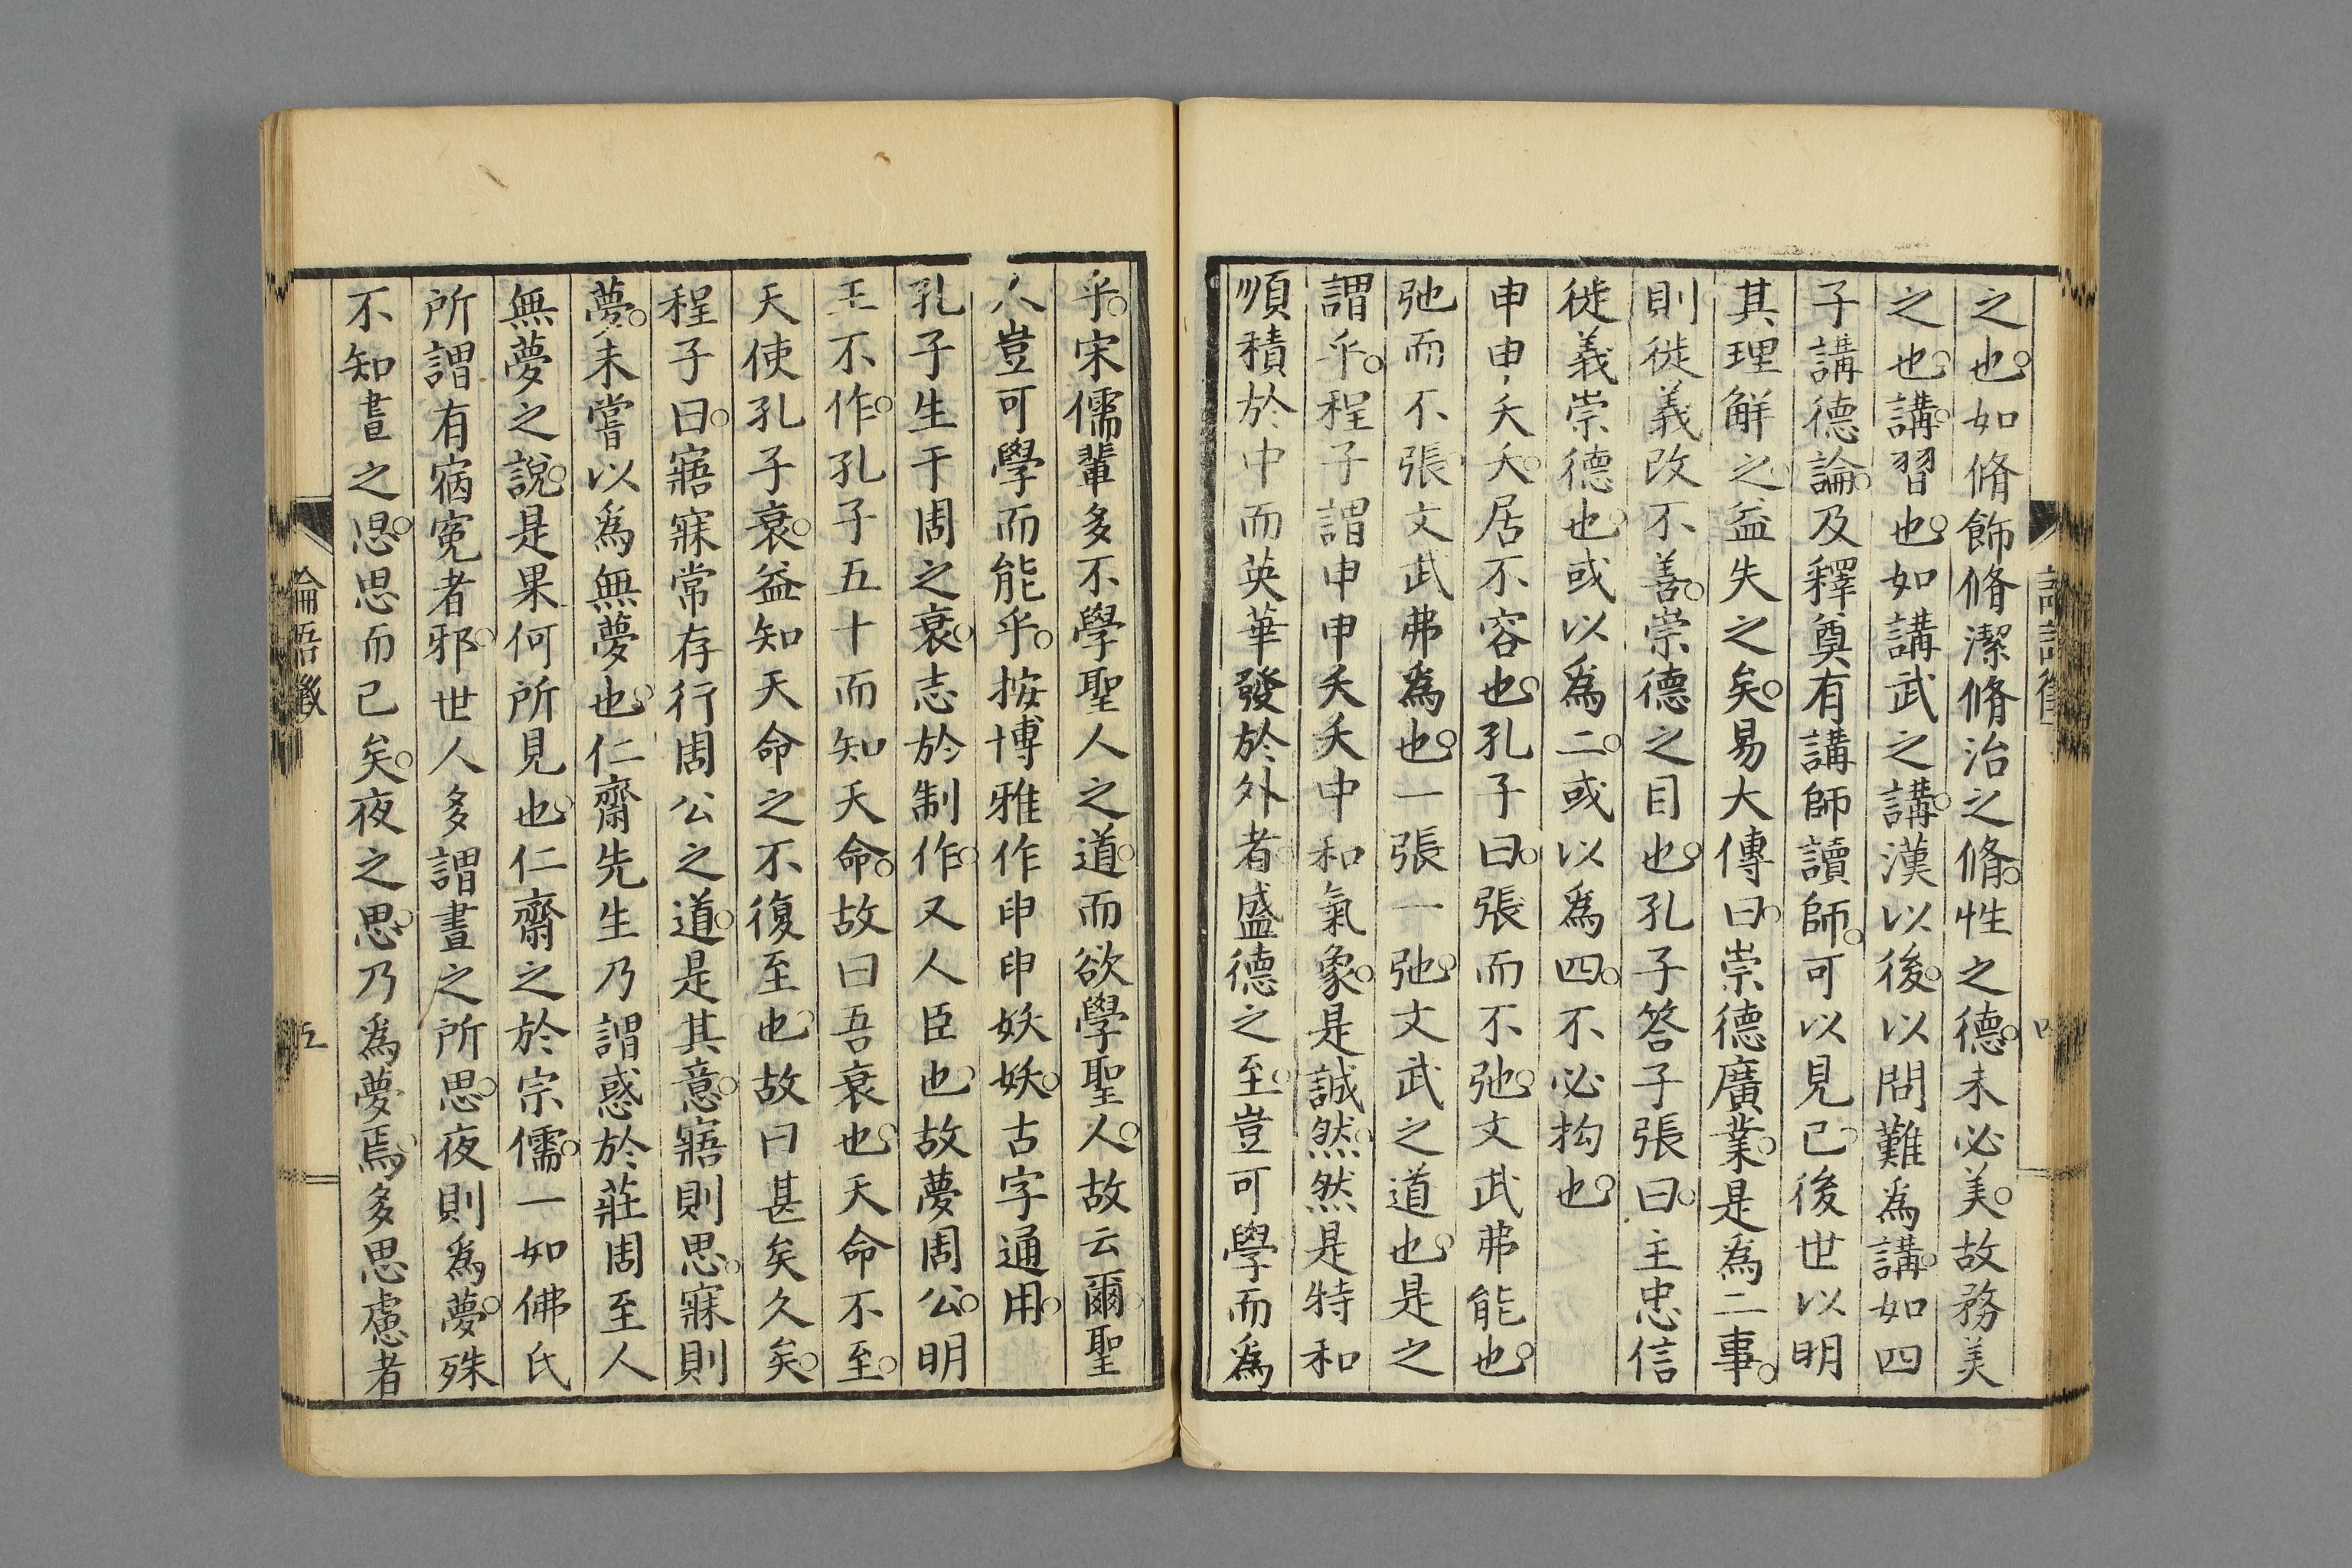 之也。如脩飾脩潔脩治之脩。性之德。未必美。故務美
之也。講。習也。如講武之講。漢以後。以問難爲講。如四
子講德論。及釋奠有講師讀師。可以見已。後世以明
其理解之。益失之矣。易大傳曰。崇德廣業。是爲二事。
則徙義改不善。崇德之目也。孔子答子張曰。主忠信
徙義崇德也。或以爲二。或以爲四。不必拘也。
申申夭夭。居不容也。孔子曰。張而不弛。文武弗能也。
弛而不張。文武弗爲也。一張一弛。文武之道也。是之
謂乎。程子謂申申夭夭中和氣象。是誠然。然是特和
順積於中而英華發於外者。盛德之至。豈可學而爲
乎。宋儒輩多不學聖人之道。而欲學聖人。故云爾。聖
人豈可學而能乎。按博雅作申申妖妖。古字通用。
孔子生于周之衰。志於制作。又人臣也。故夢周公。明
王不作。孔子五十而知天命。故曰吾衰也。天命不至。
天使孔子衰。益知天命之不復至也。故曰甚矣久矣。
程子曰。寤寐常存行周公之道。是其意。寤則思。寐則
夢。未嘗以爲無夢也。仁齋先生乃謂惑於莊周至人
無夢之說。是果何所見也。仁齋之於宗儒。一如佛氏
所謂有宿冤者邪。世人多謂晝之所思。夜則爲夢。殊
不知晝之思。思而已矣。夜之思。乃爲夢焉。多思慮者
論語徵
五